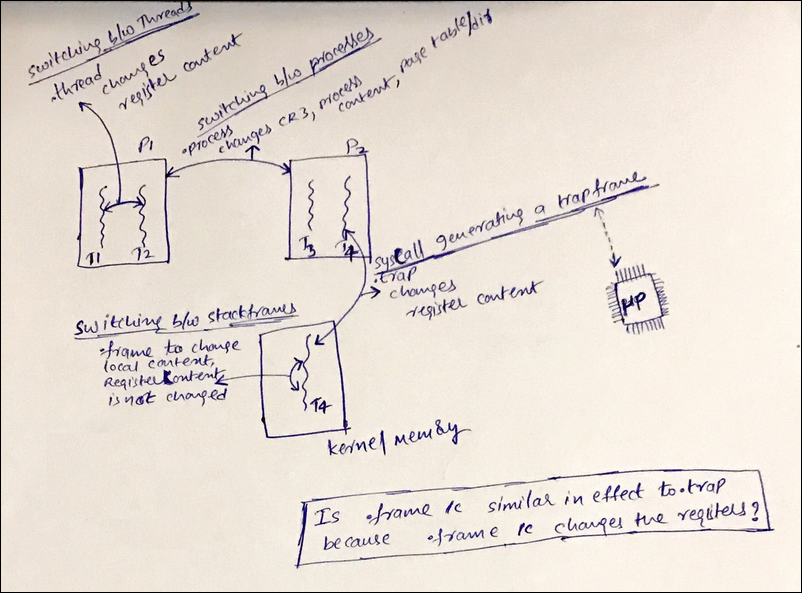 switching b/w Threads
.thread changes
register content
switching b/w processes
.process
changes CR3, process
content, page table/dir
P1
P2
T1 T2
T3 T4
syscall generating a trapframe
.trap
changes
register content
μP
switching b/w stackframes
.frame to change
local content,
Register content
is not changed
T4
kernel memory
Is .frame /c similar in effect to .trap
because .frame /c changes the registers?